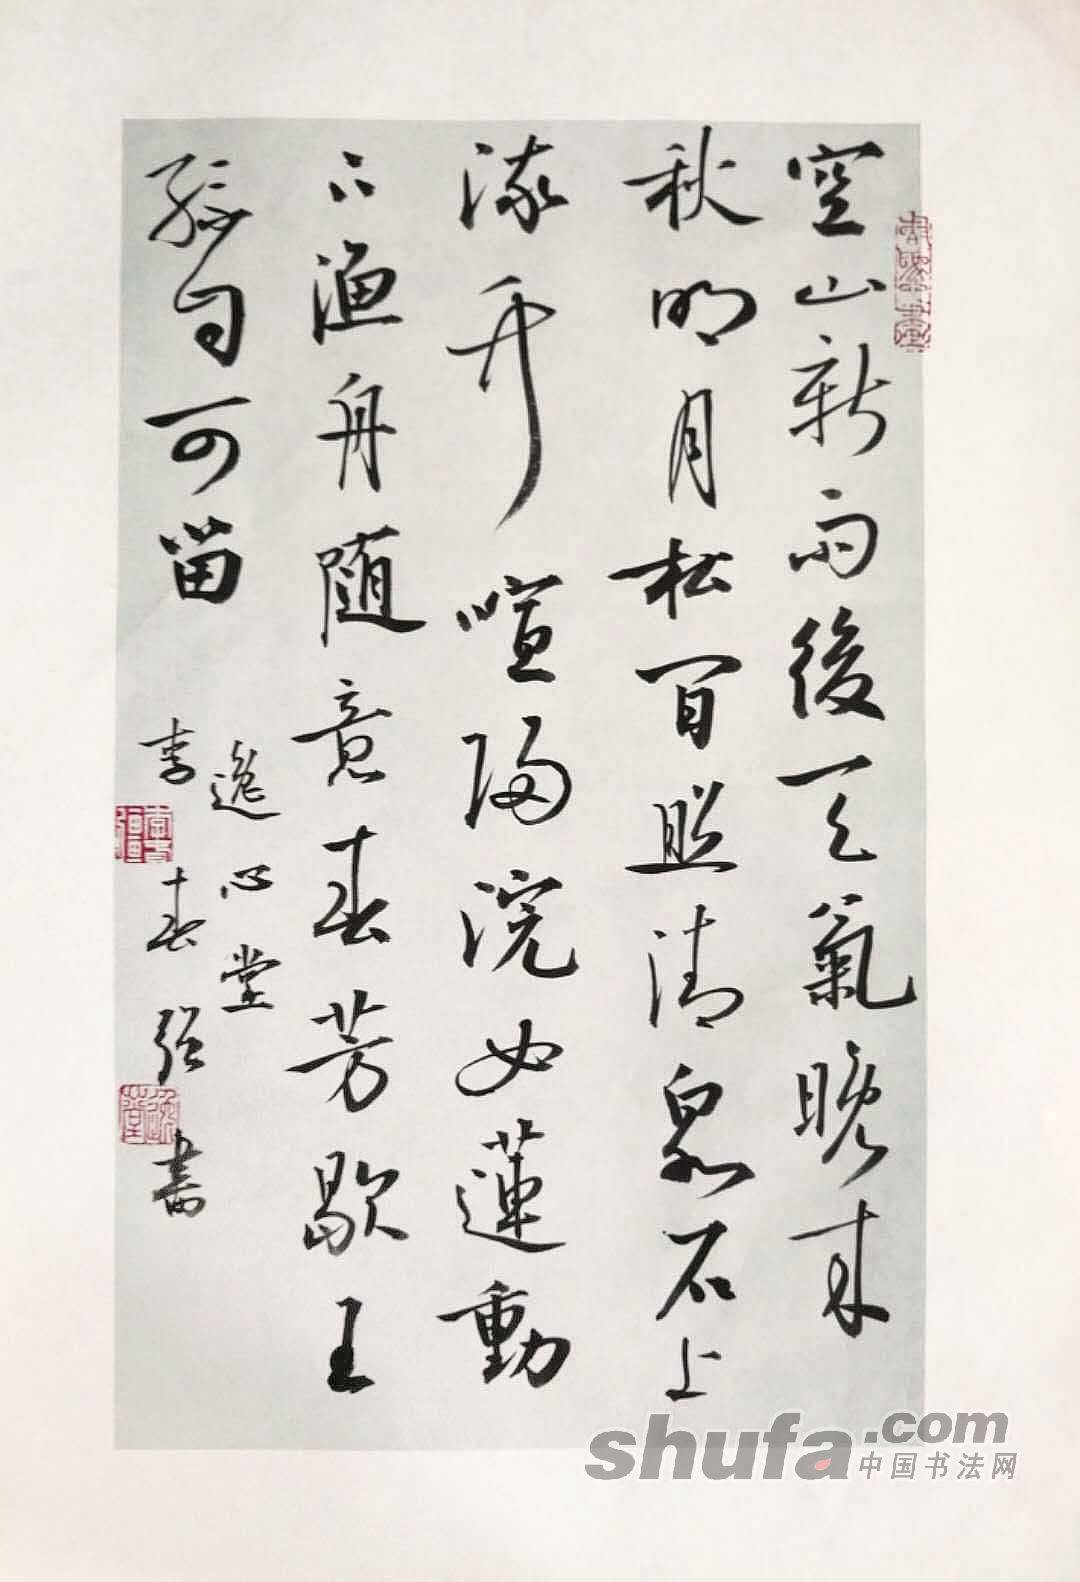 空山新雨後天氣晚来
秋明月松间照清泉石上
流竹喧歸浣女蓮動
下渔舟随意春芳歇王
孫自可留
逸心堂
李春强書
shufa.com
中国书法网